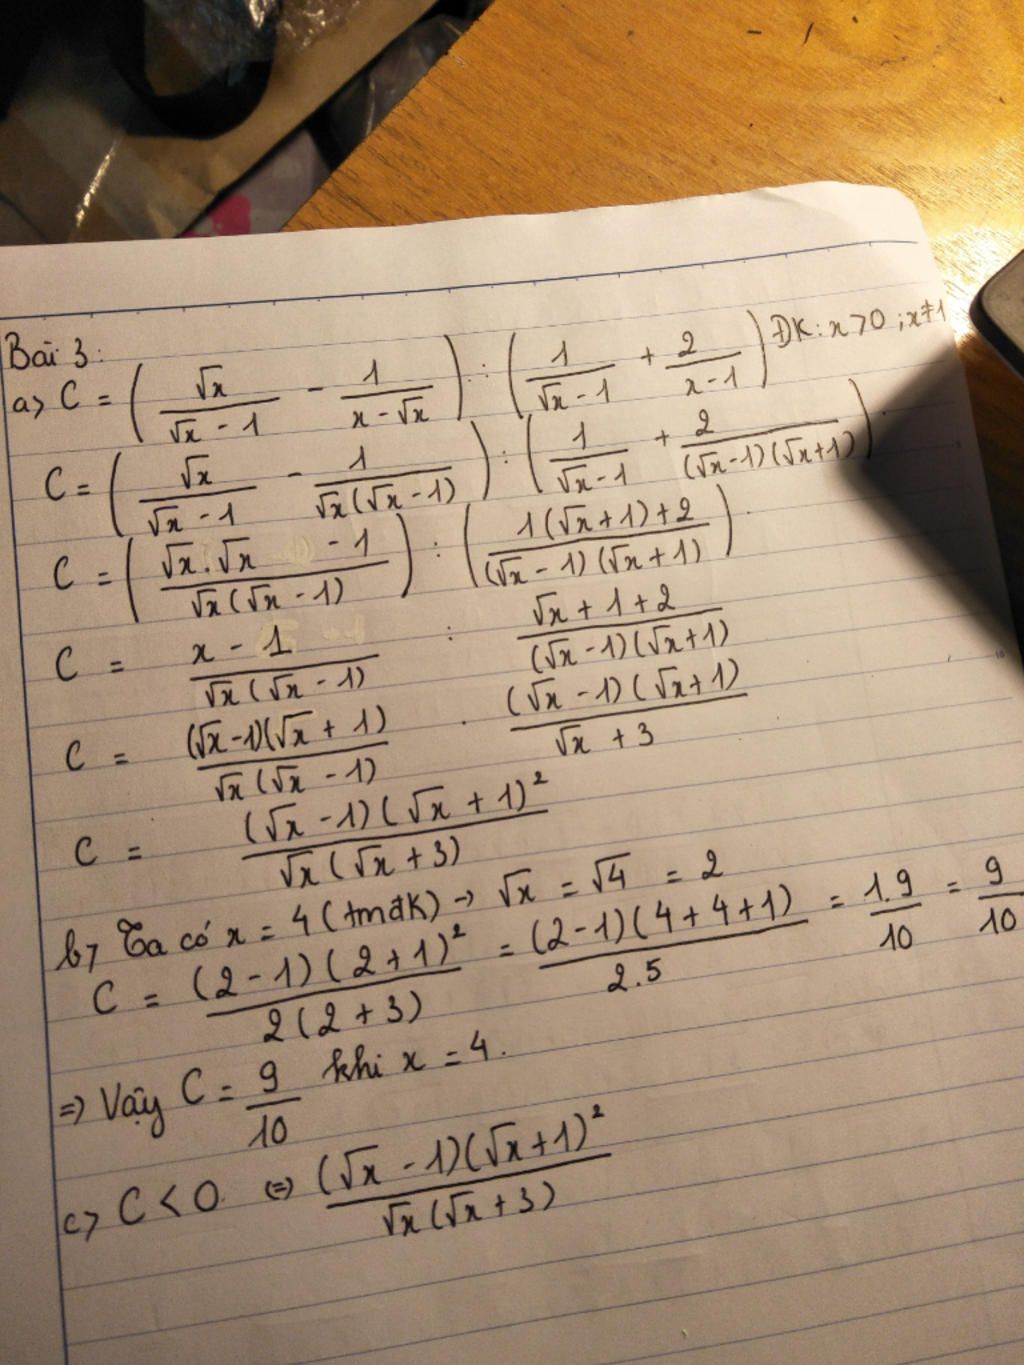 Bài 3:
a> C = ( √x / (√x - 1) - 1 / (x - √x) ) : ( 1 / (√x - 1) + 2 / (x - 1) ) ĐK: x > 0 ; x ≠ 1
C = ( √x / (√x - 1) - 1 / (√x(√x - 1)) ) : ( 1 / (√x - 1) + 2 / ((√x - 1)(√x + 1)) )
C = ( (√x . √x - 1) / (√x(√x - 1)) ) : ( (1(√x + 1) + 2) / ((√x - 1)(√x + 1)) )
C = (x - 1) / (√x(√x - 1)) : (√x + 1 + 2) / ((√x - 1)(√x + 1))
C = ((√x - 1)(√x + 1)) / (√x(√x - 1)) . ((√x - 1)(√x + 1)) / (√x + 3)
C = ((√x - 1)(√x + 1)²) / (√x(√x + 3))
b> Ta có x = 4 (tmđk) → √x = √4 = 2
C = ((2 - 1)(2 + 1)²) / (2(2 + 3)) = ((2 - 1)(4 + 4 + 1)) / (2.5) = 1.9 / 10 = 9 / 10
=> Vậy C = 9 / 10 khi x = 4.
c> C < 0 <=> ((√x - 1)(√x + 1)²) / (√x(√x + 3))